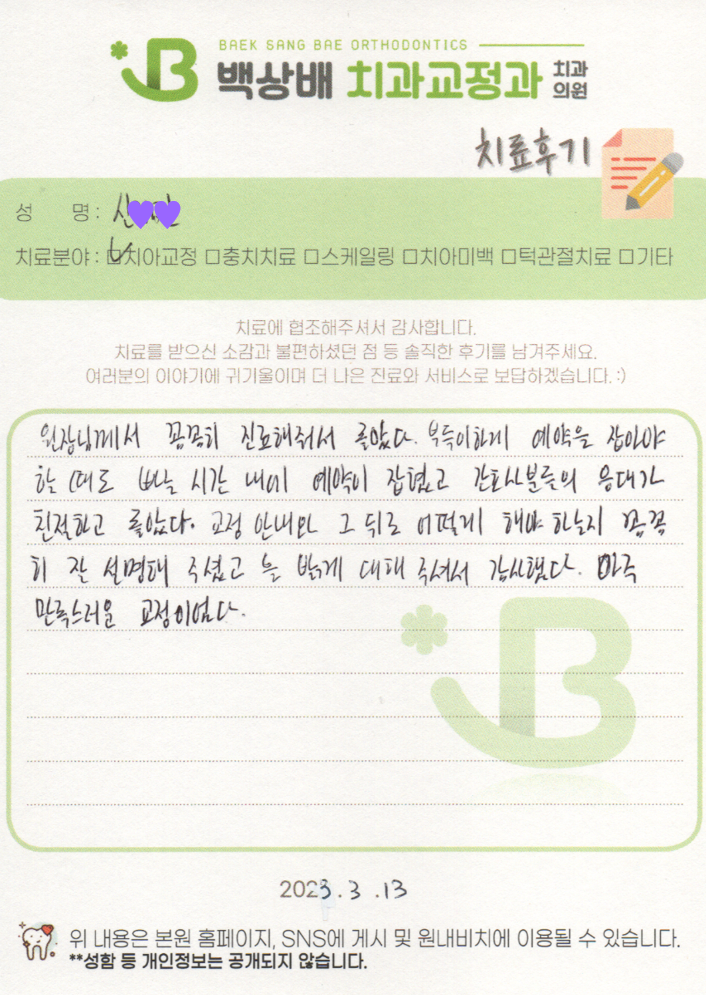 BAEK SANG BAE ORTHODONTICS
백상배 치과교정과 치과의원
치료후기
성 명 : 신
치료분야 : ☑치아교정 □충치치료 □스케일링 □치아미백 □턱관절치료 □기타
치료에 협조해주셔서 감사합니다.
치료를 받으신 소감과 불편하셨던 점 등 솔직한 후기를 남겨주세요.
여러분의 이야기에 귀기울이며 더 나은 진료와 서비스로 보답하겠습니다. :)
원장님께서 꼼꼼히 진료해주셔서 좋았다. 부득이하게 예약을 잡아야
할 때도 빠른 시간 내에 예약이 잡혔고 간호사분들의 응대가
친절하고 좋았다. 교정 안내와 그 뒤로 어떻게 해야 하는지 꼼꼼
히 잘 설명해 주셨고 늘 밝게 대해 주셔서 감사했다. 아주
만족스러운 교정이었다.
2023.3.13
위 내용은 본원 홈페이지, SNS에 게시 및 원내비치에 이용될 수 있습니다.
**성함 등 개인정보는 공개되지 않습니다.